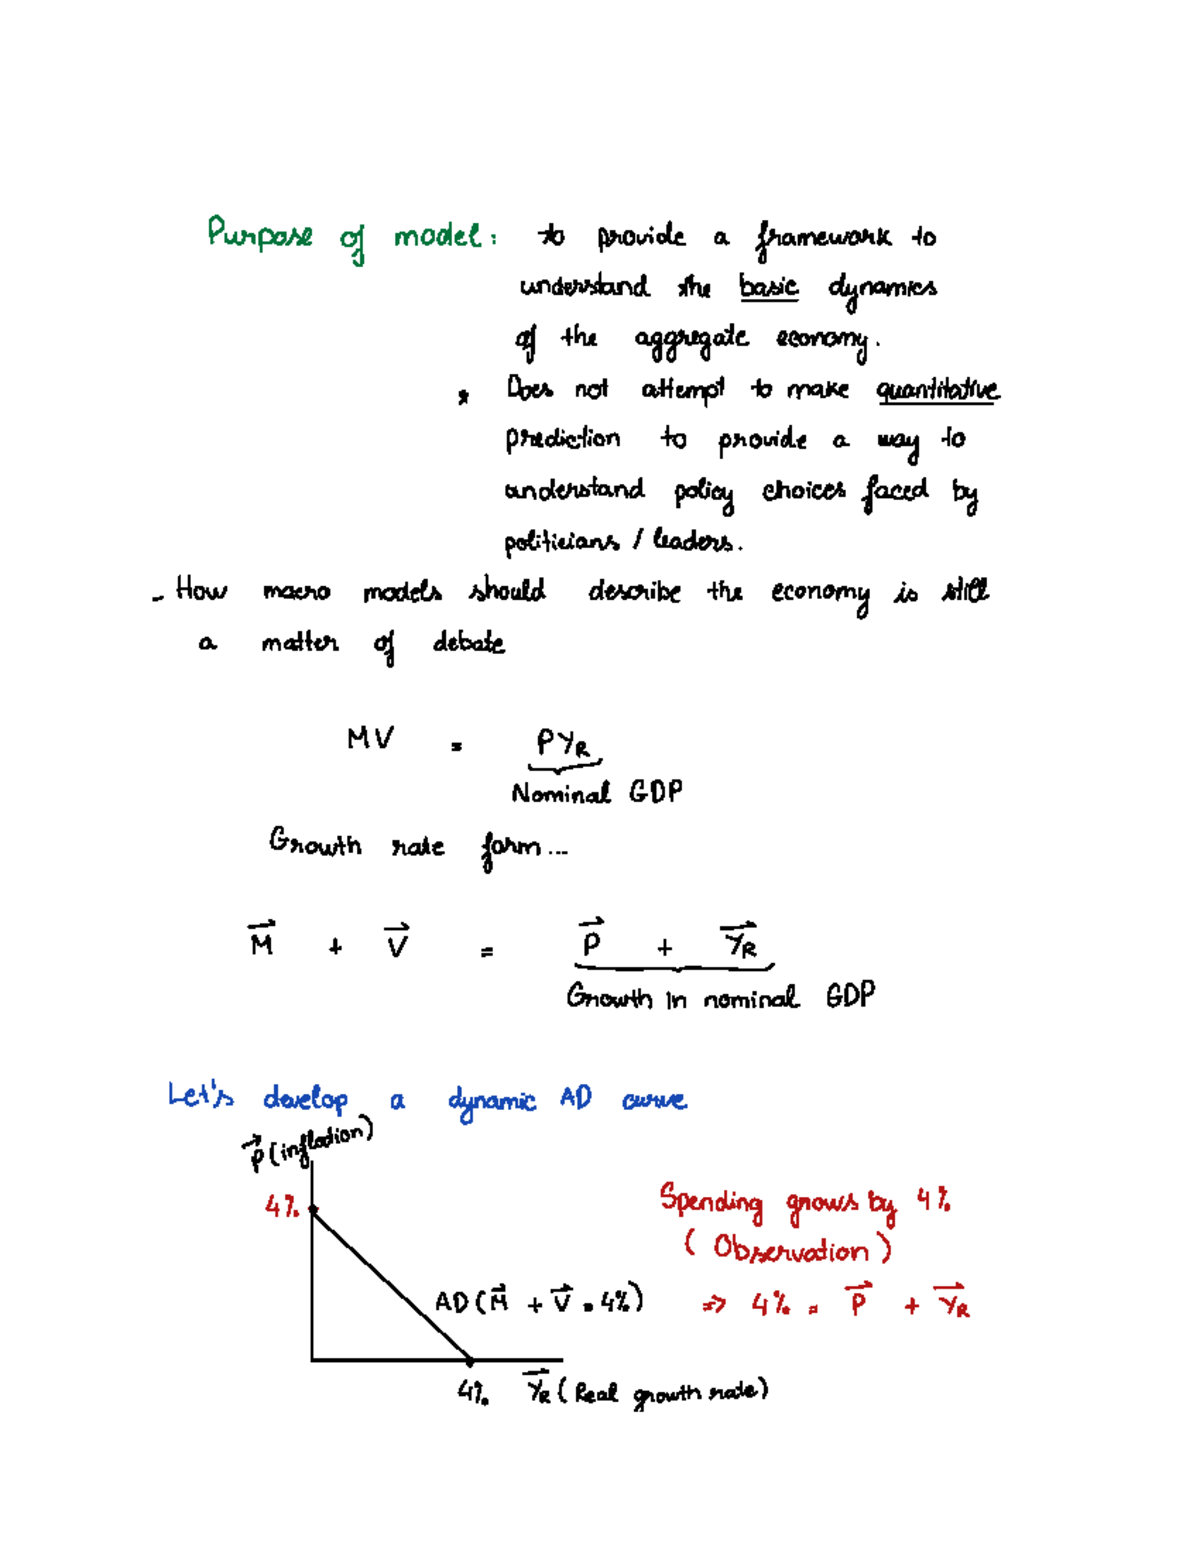 Purpose of model: to provide a framework to
understand the basic dynamics
of the aggregate economy.
* Does not attempt to make quantitative
prediction to provide a way to
understand policy choices faced by
politicians / leaders.
- How macro models should describe the economy is still
a matter of debate
MV = PY_R
Nominal GDP
Growth rate form...
M⃗ + V⃗ = P⃗ + Y⃗_R
Growth in nominal GDP
Let's develop a dynamic AD curve
P⃗ (inflation)
4%
Spending grows by 4%
(Observation)
AD (M⃗ + V⃗ = 4%)
=> 4% = P⃗ + Y⃗_R
4%
Y⃗_R (Real growth rate)